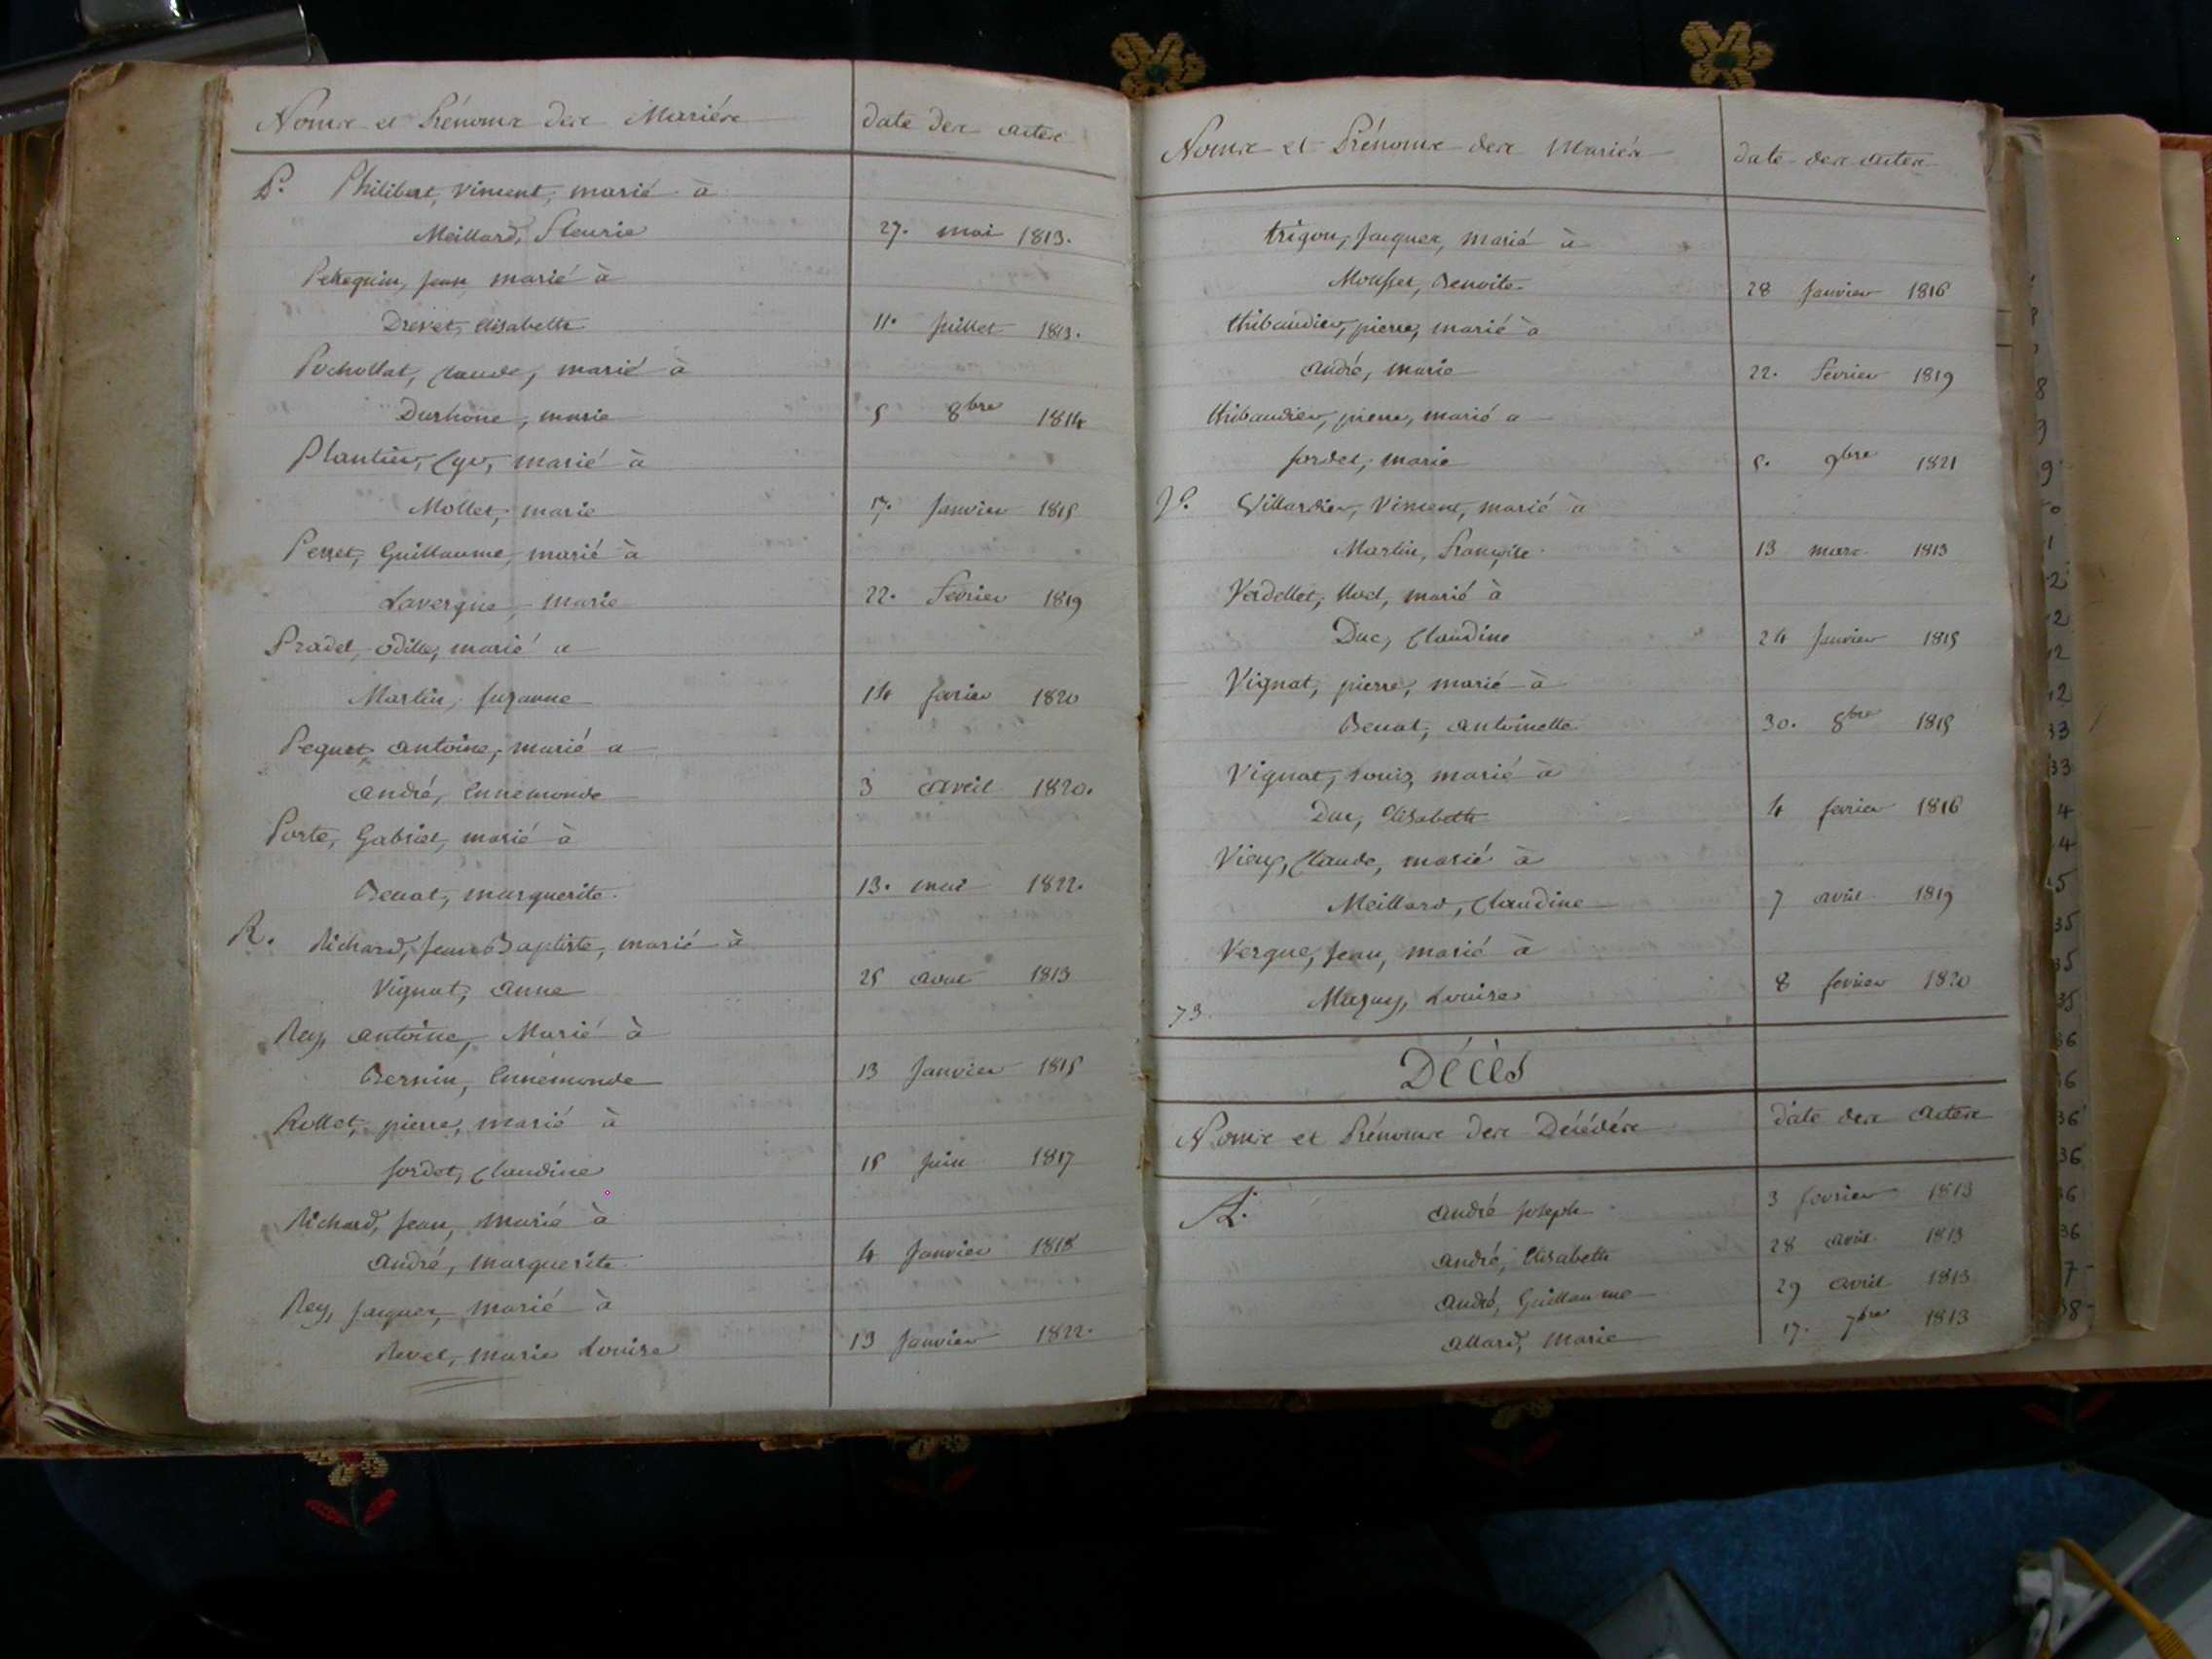 Noms et Prénoms des Mariés date des actes
P. Philibert, Vincent, marié à
Meillard, Fleurie 27. mai 1813.
Petrequin, Jean marié à
Drevet, Elisabeth 11. Juillet 1813.
Pochollat, Claude, marié à
Durhone, marie 5 8bre 1814
Plantier, Cyr, marié à
Mollet, marie 17. Janvier 1815
Perret, Guillaume, marié à
Lavergne, marie 22. Fevrier 1819
Pradel, odille, marié a
Martin, Suzanne 14 fevrier 1820
Peguet, antoine, marié a
andré, Ennemonde 3 avril 1820.
Porte, Gabriel, marié à
Benat, marguerite. 13. mai 1822.
R. Richard, Jean Baptiste, marié à
Vignat, anne 25 aout 1813
Rey, antoine, Marié à
Bernin, Ennemonde 13 Janvier 1815
Rollet, pierre, marié à
Jordet, Claudine 15 Juin 1817
Richard, Jean, marié à
andré, marguerite 4 Janvier 1818
Rey, Jacques, marié à
Revel, marie Louise 13 Janvier 1822.
Noms et Prénoms des Mariés date des actes
trigon, Jacques, marié à
Mousset, Benoite 28 Janvier 1816
thibaudier, pierre, marié à
andré, marie 22. Fevrier 1819
thibaudier, pierre, marié a
Jordet, marie 5. 9bre 1821
V. Villardier, Vincent, marié à
Martin, Françoise 13 mars 1813
Verdellet, marié à
Duc, Claudine 24 Janvier 1815
Vignat, pierre, marié à
Benat, antoinette 30. 8bre 1815
Vignat, Louis, marié à
Duc, Elisabeth 4 fevrier 1816
Vieux, Claude, marié à
Meillard, Claudine 7 avril 1819
Vergne, Jean, marié à
73. Magny, Louise 8 fevrier 1820
Décès
Noms et Prénoms des Décédés date des actes
A. andré Joseph 3 fevrier 1813
andré, Elisabeth 28 avril 1813
andré, Guillaume 29 avril 1813
allard, Marie 17. 7bre 1813